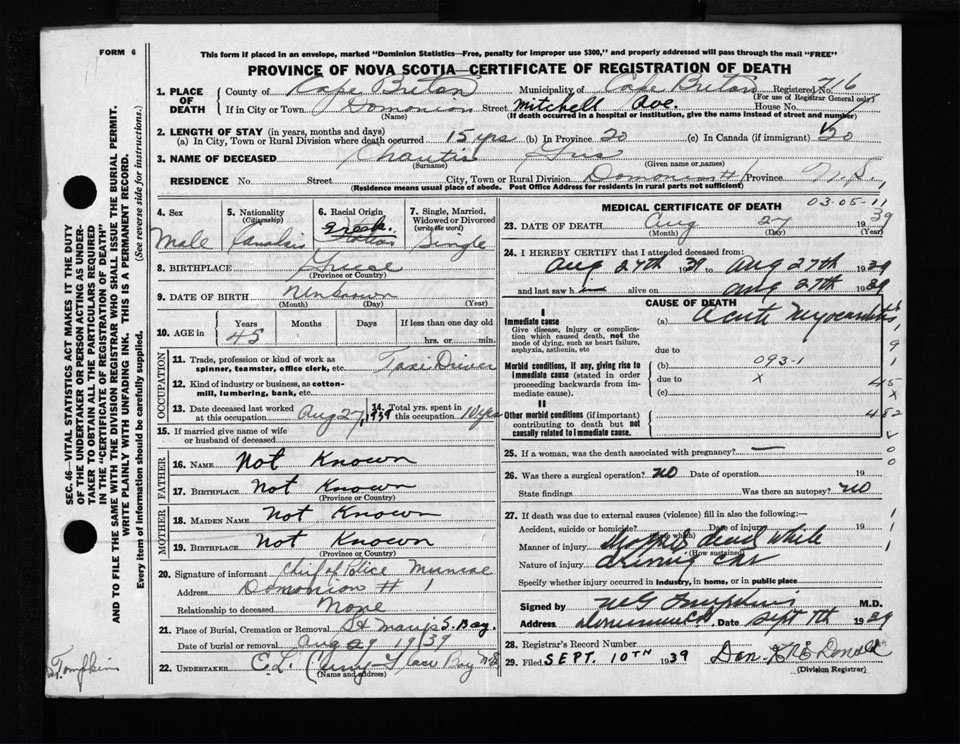 FORM 6
This form if placed in an envelope, marked "Dominion Statistics—Free, penalty for improper use $300," and properly addressed will pass through the mail "FREE"
PROVINCE OF NOVA SCOTIA—CERTIFICATE OF REGISTRATION OF DEATH
1. PLACE OF DEATH
County of Cape Breton Municipality of Cape Breton Registered No. 716
(For use of Registrar General only)
If in City or Town Dominion Street Mitchell Ave. House No.
(Name) (If death occurred in a hospital or institution, give the name instead of street and number)
2. LENGTH OF STAY (in years, months and days)
(a) In City, Town or Rural Division where death occurred 15 yrs (b) In Province 20 (c) In Canada (if immigrant) 20
3. NAME OF DECEASED Gus
(Surname) (Given name or names)
RESIDENCE No. Street City, Town or Rural Division Dominion #1 Province N.S.
(Residence means usual place of abode. Post Office Address for residents in rural parts not sufficient)
SEC. 46—VITAL STATISTICS ACT MAKES IT THE DUTY
OF THE UNDERTAKER OR PERSON ACTING AS UNDER-
TAKER TO OBTAIN ALL THE PARTICULARS REQUIRED
IN THE "CERTIFICATE OF REGISTRATION OF DEATH"
AND TO FILE THE SAME WITH THE DIVISION REGISTRAR WHO SHALL ISSUE THE BURIAL PERMIT.
WRITE PLAINLY WITH UNFADING INK. THIS IS A PERMANENT RECORD.
Every item of information should be carefully supplied. (See reverse side for instructions.)
4. Sex
Male
5. Nationality
(Citizenship)
6. Racial Origin
Greek
7. Single, Married, Widowed or Divorced
(write the word)
Single
8. BIRTHPLACE Greece
(Province or Country)
9. DATE OF BIRTH Unknown
(Month) (Day) (Year)
10. AGE in
Years Months Days If less than one day old
45 hrs. or min.
OCCUPATION
11. Trade, profession or kind of work as
spinner, teamster, office clerk, etc. Taxi Driver
12. Kind of industry or business, as cotton-
mill, lumbering, bank, etc.
13. Date deceased last worked
at this occupation Aug 27, 1939
14. Total yrs. spent in
this occupation 10 yrs
15. If married give name of wife
or husband of deceased
FATHER
16. NAME Not Known
17. BIRTHPLACE Not Known
(Province or Country)
MOTHER
18. MAIDEN NAME Not Known
19. BIRTHPLACE Not Known
(Province or Country)
20. Signature of informant Chief of Police
Address Dominion # 1
Relationship to deceased None
21. Place of Burial, Cremation or Removal St Marys S. Bay.
Date of burial or removal Aug 29 1939
22. UNDERTAKER C.L. Curry - Glace Bay N.S.
(Name and address)
MEDICAL CERTIFICATE OF DEATH
03-05-11
23. DATE OF DEATH Aug 27 1939
(Month) (Day) (Year)
24. I HEREBY CERTIFY that I attended deceased from:
Aug 27th 1939 to Aug 27th 1939
and last saw h alive on Aug 27th 1939
CAUSE OF DEATH
I
Immediate cause
Give disease, injury or complica-
tion which caused death, not the
mode of dying, such as heart failure,
asphyxia, asthenia, etc
(a) Acute Myocarditis
due to
Morbid conditions, if any, giving rise to
immediate cause (stated in order
proceeding backwards from im-
mediate cause).
(b) 093-1
due to x
(c)
II
Other morbid conditions (if important)
contributing to death but not
causally related to immediate cause.
9
1
45
x
452
25. If a woman, was the death associated with pregnancy? —
26. Was there a surgical operation? no Date of operation 19
State findings Was there an autopsy? no
27. If death was due to external causes (violence) fill in also the following:—
Accident, suicide or homicide? Date of injury 19
(State which)
Manner of injury dropped dead while
(How sustained)
Nature of injury driving car
Specify whether injury occurred in industry, in home, or in public place
Signed by M.D.
Address Date Sept 7th 1939
28. Registrar's Record Number
29. Filed SEPT. 10TH 1939 Dan. McDonald
(Division Registrar)
Tompkins